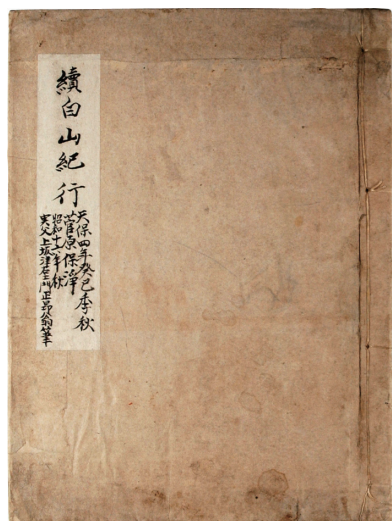 續白山紀行
天保四年癸巳季秋
菅原保淨
昭和十六年秋
実父上坂津右ヱ門正翁筆